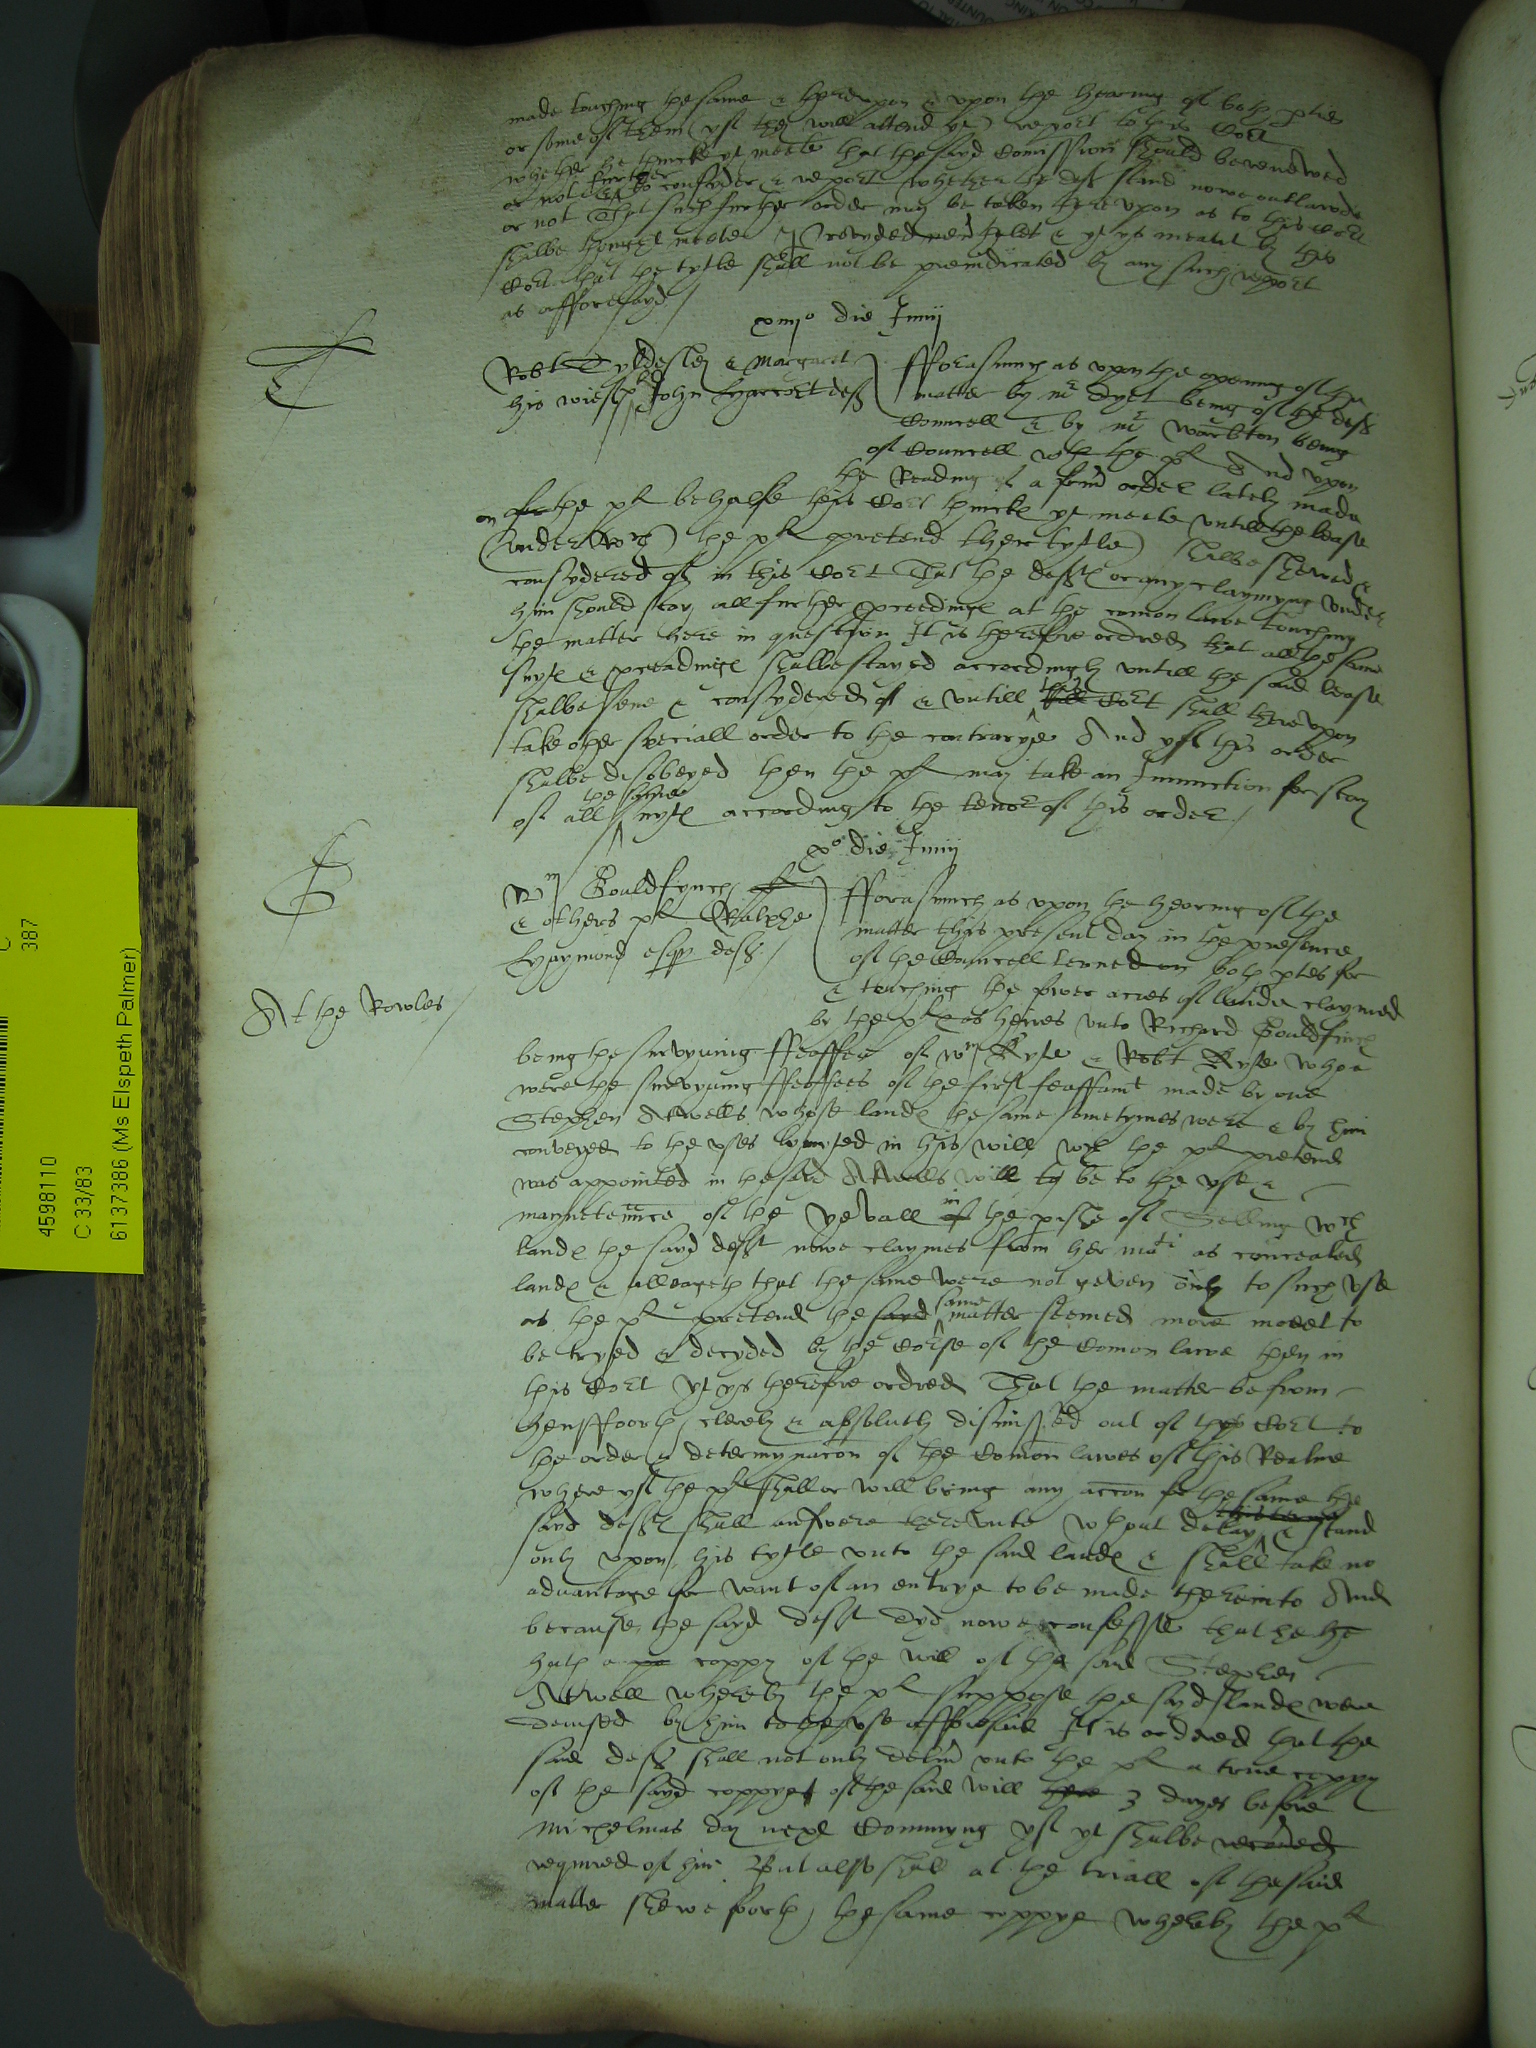 made touching the same & thereupon & upon the hearing of both pties
or some of them (yf they will attend yt) report to this Cort
whether he thincke yt meete that the sayd Comission should be renewed
or not & further to consyder & report whether the deft stand nowe outlawde
or not That such further order may be taken thereupon as to this Cort
shalbe thought meete Provyded & yt ys meant by this
Cort that the tytle shall not be preiudicated by any such report
as afforesayd
xiiijo die Junij
T
Robt Tyldesley & Margaret
his wief plt John deft
fforasmuch as upon the opening of the
matter by mr Dyet being of the defts
Councell & by mr Warbton being
of Councell wth the plt And upon
the Reading of a form order lately made
on the plt behalfe this Cort thincke yt meete untill the lease
(under wch the plt pretend their tytle) shalbe shewed &
consydered of in this Cort That the deft or any clayming under
him should stay all further pceedinge at the comon lawe touching
the matter here in question It is therefore ordred that all the same
suyte & pceadinge shalbe stayed accordingly untill the said lease
shalbe sene & consydered of & untill this Cort shall thereupon
take other speciall order to the contrarye And yf this order
shalbe disobeyed then the plt may take an Iniunction for stay
of all the same suyte according to the tenor of this order
xo die Junij
G
Wm Gouldfynch
& others plt Raphe
Haymond esqr deft
At the Rowles
fforasmuch as upon the hearing of the
matter this present day in the presence
of the Councell lerned on both ptes for
& touching the fower acres of lande claymed
by the plt as heires unto Richard Gouldfinch
being the survyving ffeoffee of Wm Ryse & Robt Ryse whoe
were the survyving ffeoffees of the first feoffamt made by one
Stephen Atwells whose lande the same sometymes were & by him
conveyed to the uses lymited in his will wch the plt pretend
was appointed in the sayd Atwells will to be to the use &
mayntenance of the yevall in the pishe of Selling wch
lande the sayd deft nowe claymes from her matie as concealed
lande & alleageth that the same were not geven only to such use
as the plt pretend the said same matter seemed more meet to
be tryed & decyded by the course of the Comon lawe then in
this Cort yt ys therefore ordred That the matter be from
hensfforth clerely & absolutly dismissed out of this Cort to
the order & determynacon of the Comon lawes of this Realme
where yf the plt shall or will bring any accon for the same the
sayd deft shall answere thereunto wthout delay & stand
only upon his tytle unto the said lande & shall take no
advantage for want of an entrye to be made thereinto And
because the sayd deft dyd nowe confesse that he he
hath a coppy of the will of the said Stephen
Atwell whereby the plt suppose the sayd lande were
devised by him to the use afforesaid It is ordered that the
said deft shall not only deliver unto the plt a true coppy
of the sayd coppye of the said will 3 dayes before
Michelmas day next Commyng yf yt shalbe
required of him But also shall at the triall of the said
matter shewe forth the same coppye whereby the plt
4598110
C 33/83
6137386 (Ms Elspeth Palmer)
C
387